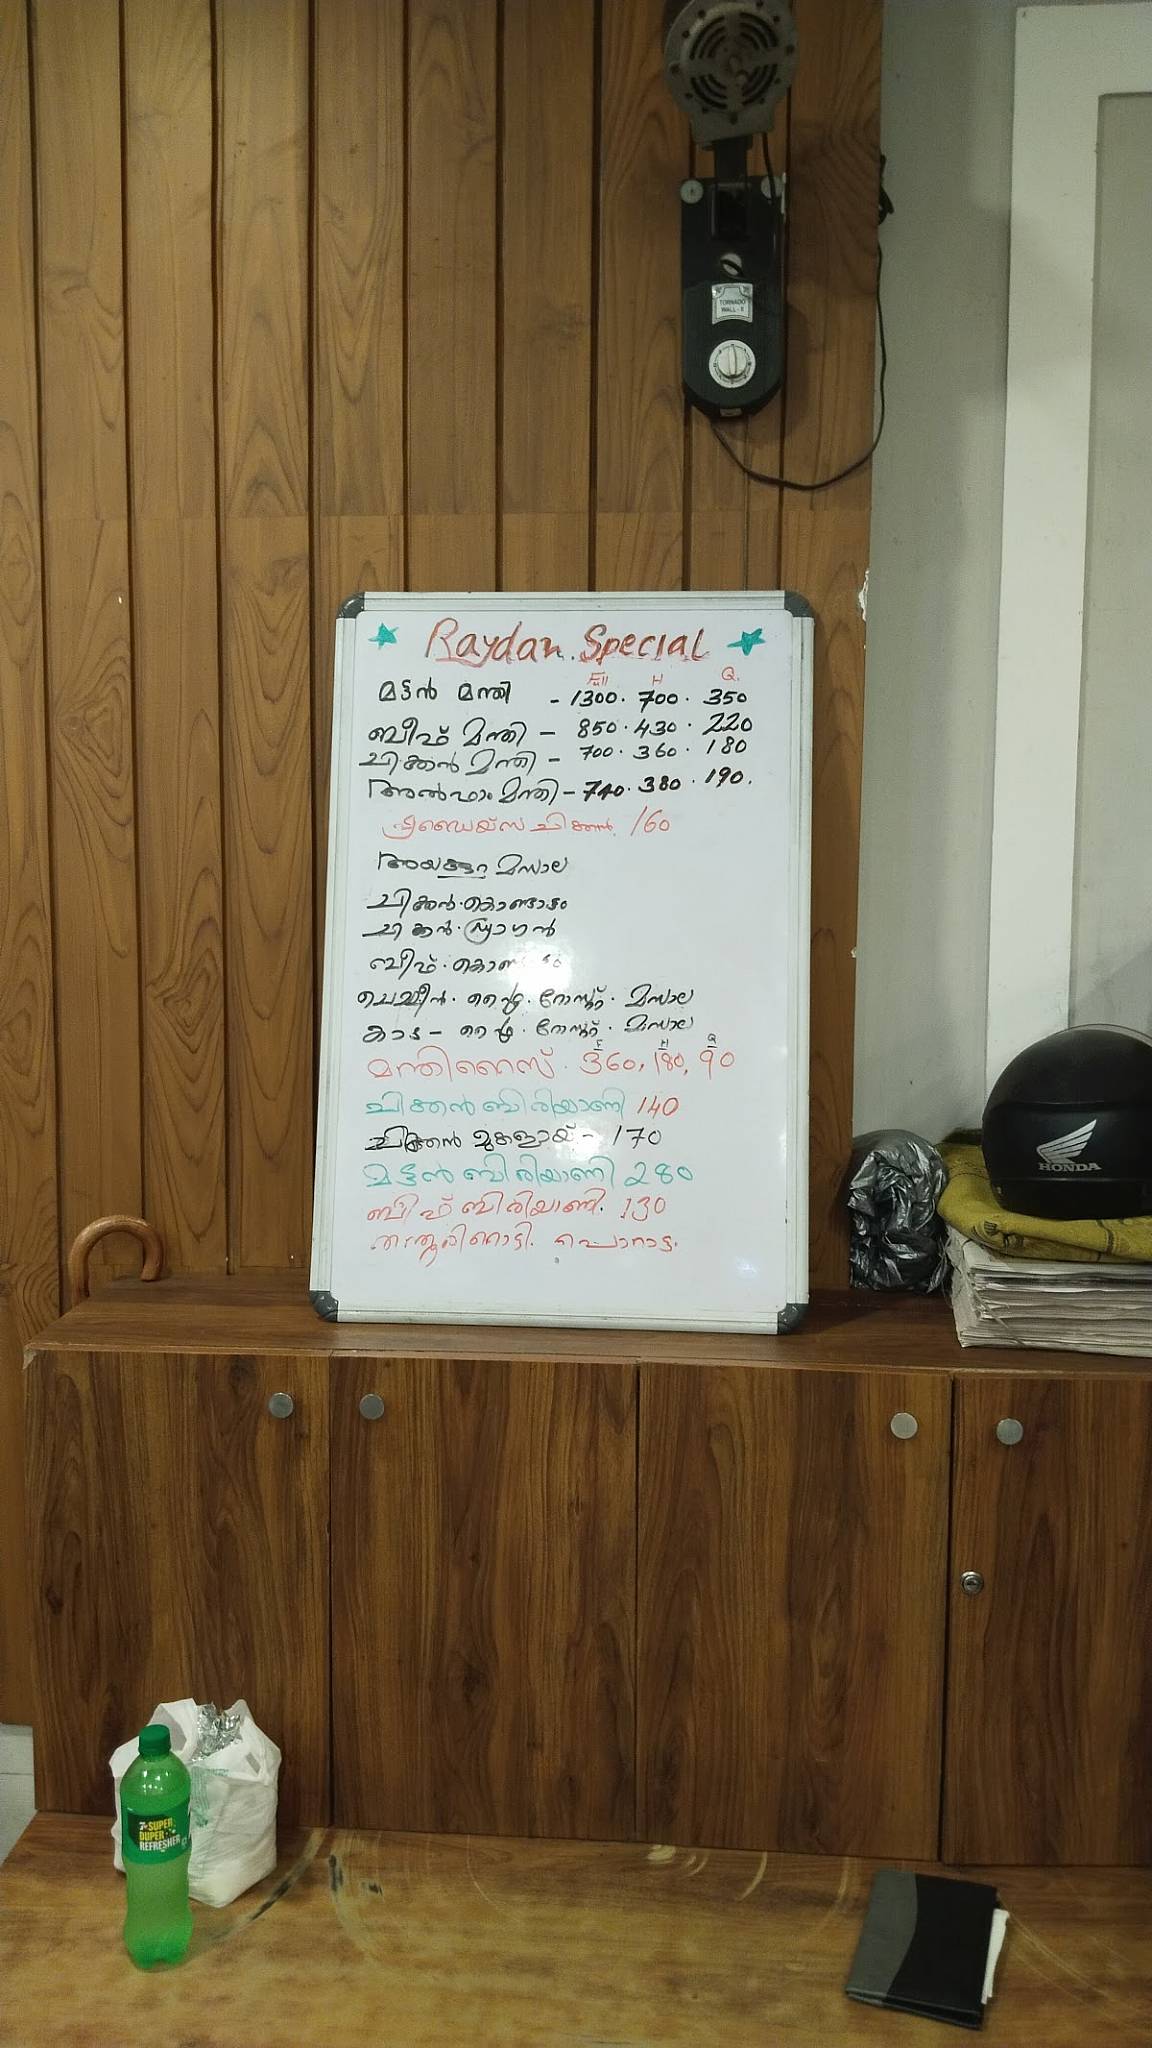 TORNADO
WALL-II
Raydan Special
Full H Q.
മട്ടൻ മന്തി - 1300. 700. 350
ബീഫ് മന്തി - 850. 430. 220
ചിക്കൻ മന്തി - 700. 360. 180
അൽഫാം മന്തി - 740. 380. 190.
ചിക്കൻ 160
അയക്കൂറ മസാല
ചിക്കൻ. കൊണ്ടാട്ടം
ചിക്കൻ. ഡ്രാഗൻ
ബീഫ്.
ചെമ്മീൻ. ഫ്രൈ. റോസ്റ്റ്. മസാല
കാട - ഫ്രൈ. റോസ്റ്റ്. മസാല
F H Q
മന്തി റൈസ്. 360, 180, 90
ചിക്കൻ ബിരിയാണി 140
ചിക്കൻ മുഗളായ് - 170
മട്ടൻ ബിരിയാണി 280
ബീഫ് ബിരിയാണി. 130
തന്തൂരി റൊട്ടി. പൊറാട്ട.
HONDA
SUPER
DUPER
REFRESHER